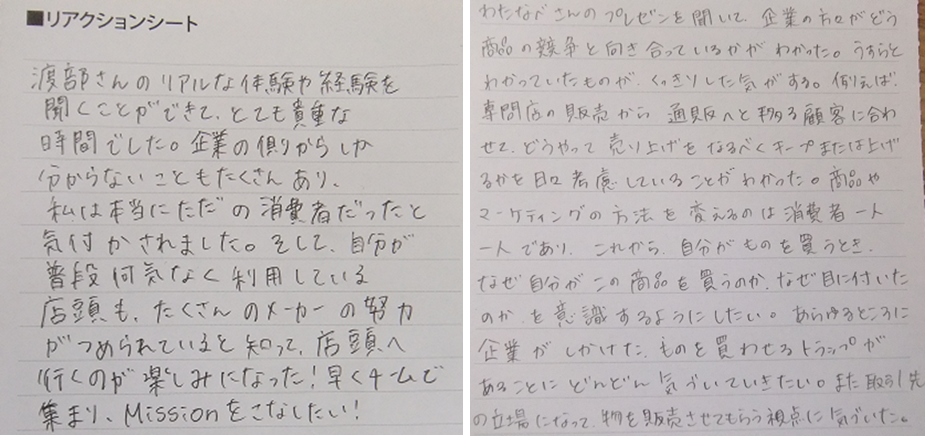 ■リアクションシート
渡部さんのリアルな体験や経験を
聞くことができて、とても貴重な
時間でした。企業の側からしか
分からないこともたくさんあり、
私は本当にただの消費者だったと
気付かされました。そして、自分が
普段何気なく利用している
店頭も、たくさんのメーカーの努力
がつめられていると知って、店頭へ
行くのが楽しみになった！早くチームで
集まり、Missionをこなしたい！
わたなべさんのプレゼンを聞いて、企業の方々がどう
商品の競争と向き合っているかがわかった。うすらと
わかっていたものが、くっきりした気がする。例えば、
専門店の販売から通販へと移る顧客に合わ
せて、どうやって売り上げをなるべくキープまたは上げ
るかを日々考慮していることがわかった。商品や
マーケティングの方法を変えるのは消費者一人
一人であり、これから、自分がものを買うとき、
なぜ自分がこの商品を買うのか、なぜ目に付いた
のか、を意識するようにしたい。あらゆるところに
企業がしかけた、ものを買わせるトラップが
あることにどんどん気づいていきたい。また取引先
の立場になって、物を販売させてもらう視点に気づいた。